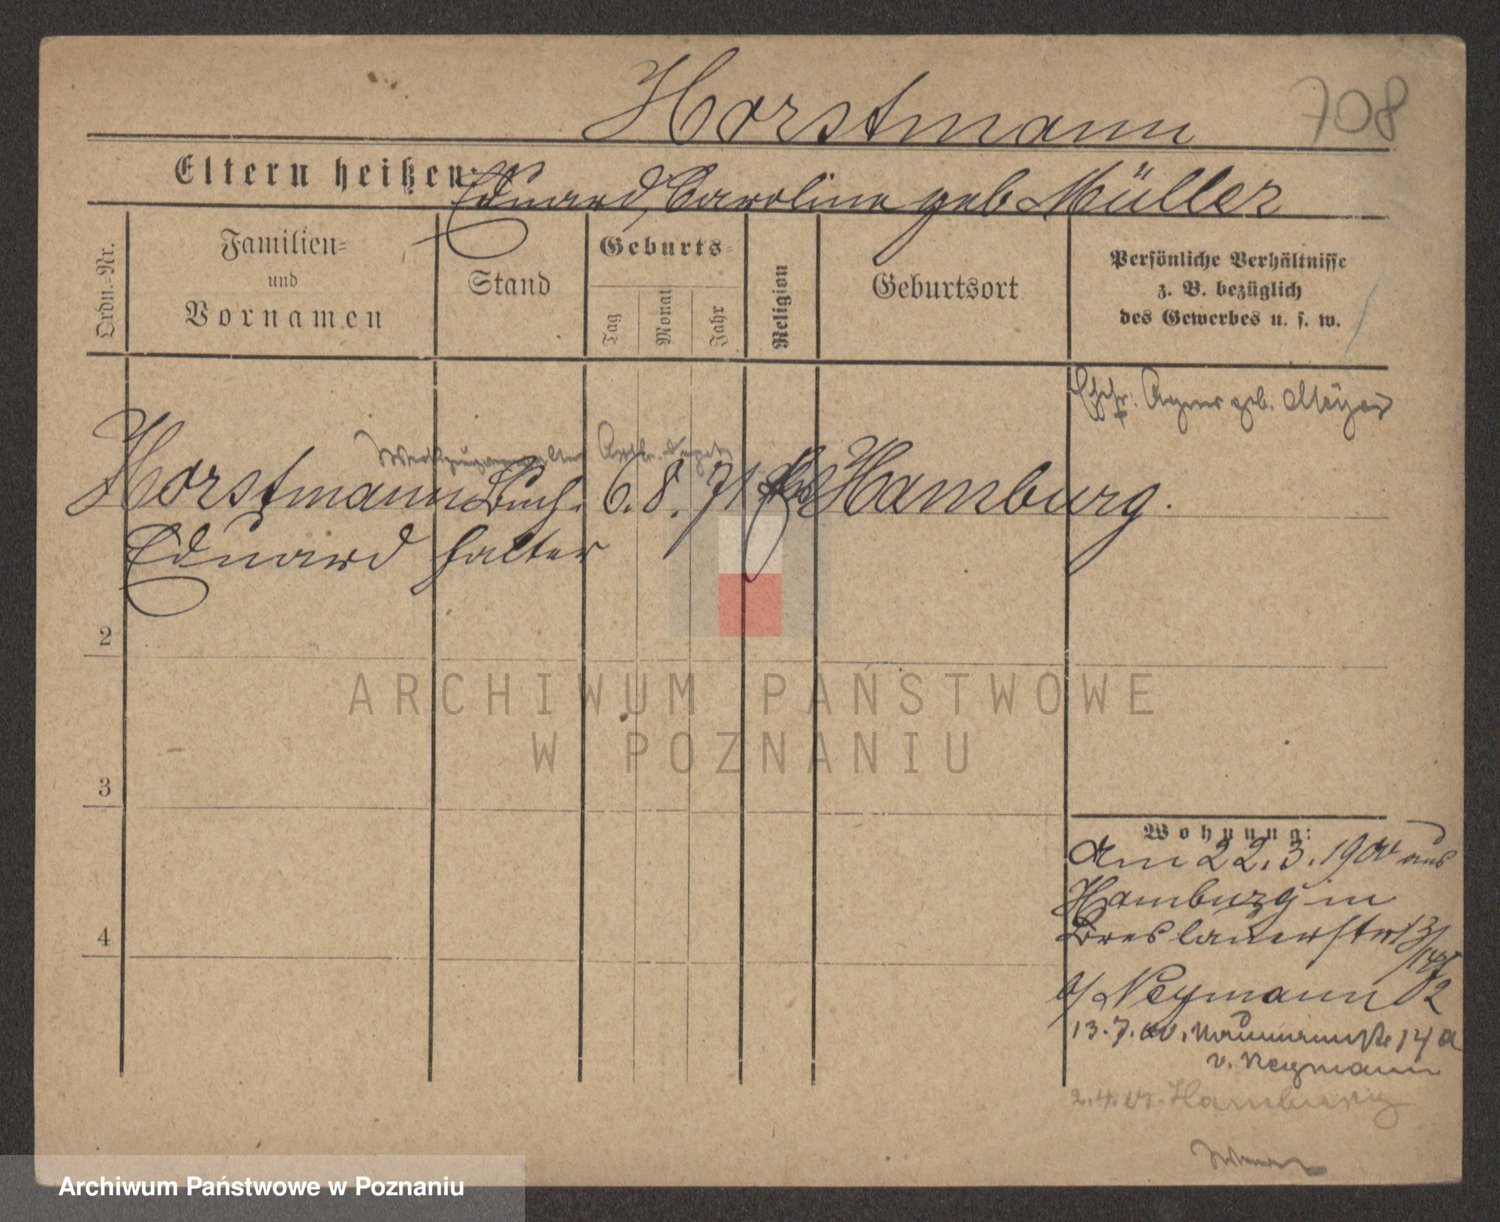 Horstmann
708
Eltern heißen:
Eduard, Caroline geb Müller
Ordn.-Nr.
Familien-
und
Vornamen
Stand
Geburts-
Tag
Monat
Jahr
Religion
Geburtsort
Persönliche Verhältnisse
z. B. bezüglich
des Gewerbes u. s. w.
Ehefr. Agnes geb. Meyer
Horstmann Buch- 6. 8. 71 Hamburg.
Eduard halter
2
3
4
ARCHIWUM PAŃSTWOWE
W POZNANIU
Wohnung:
Am 22.3.1900 aus
Hamburg in
Breslauerstr 13/
14
b/ Neymann
13.7.00. 14a
v. Neymann
2.4.01. Hamburg
Archiwum Państwowe w Poznaniu